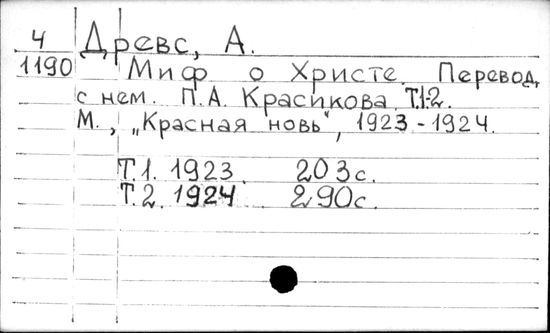 Ч Древс, А.
1190 Миф о Христе. Перевод
с нем. П.А. Красикова. Т.1-2.
М., „Красная новь", 1923-1924.
Т.1. 1923. 203с.
Т.2. 1924. 290с.